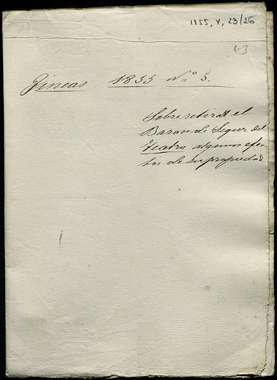 1855, X, 23/26
(1)
Fincas 1855 Nº 5.
Sobre retirar el
Baron de Segur del
Teatro algunos efec
tos de su propiedad